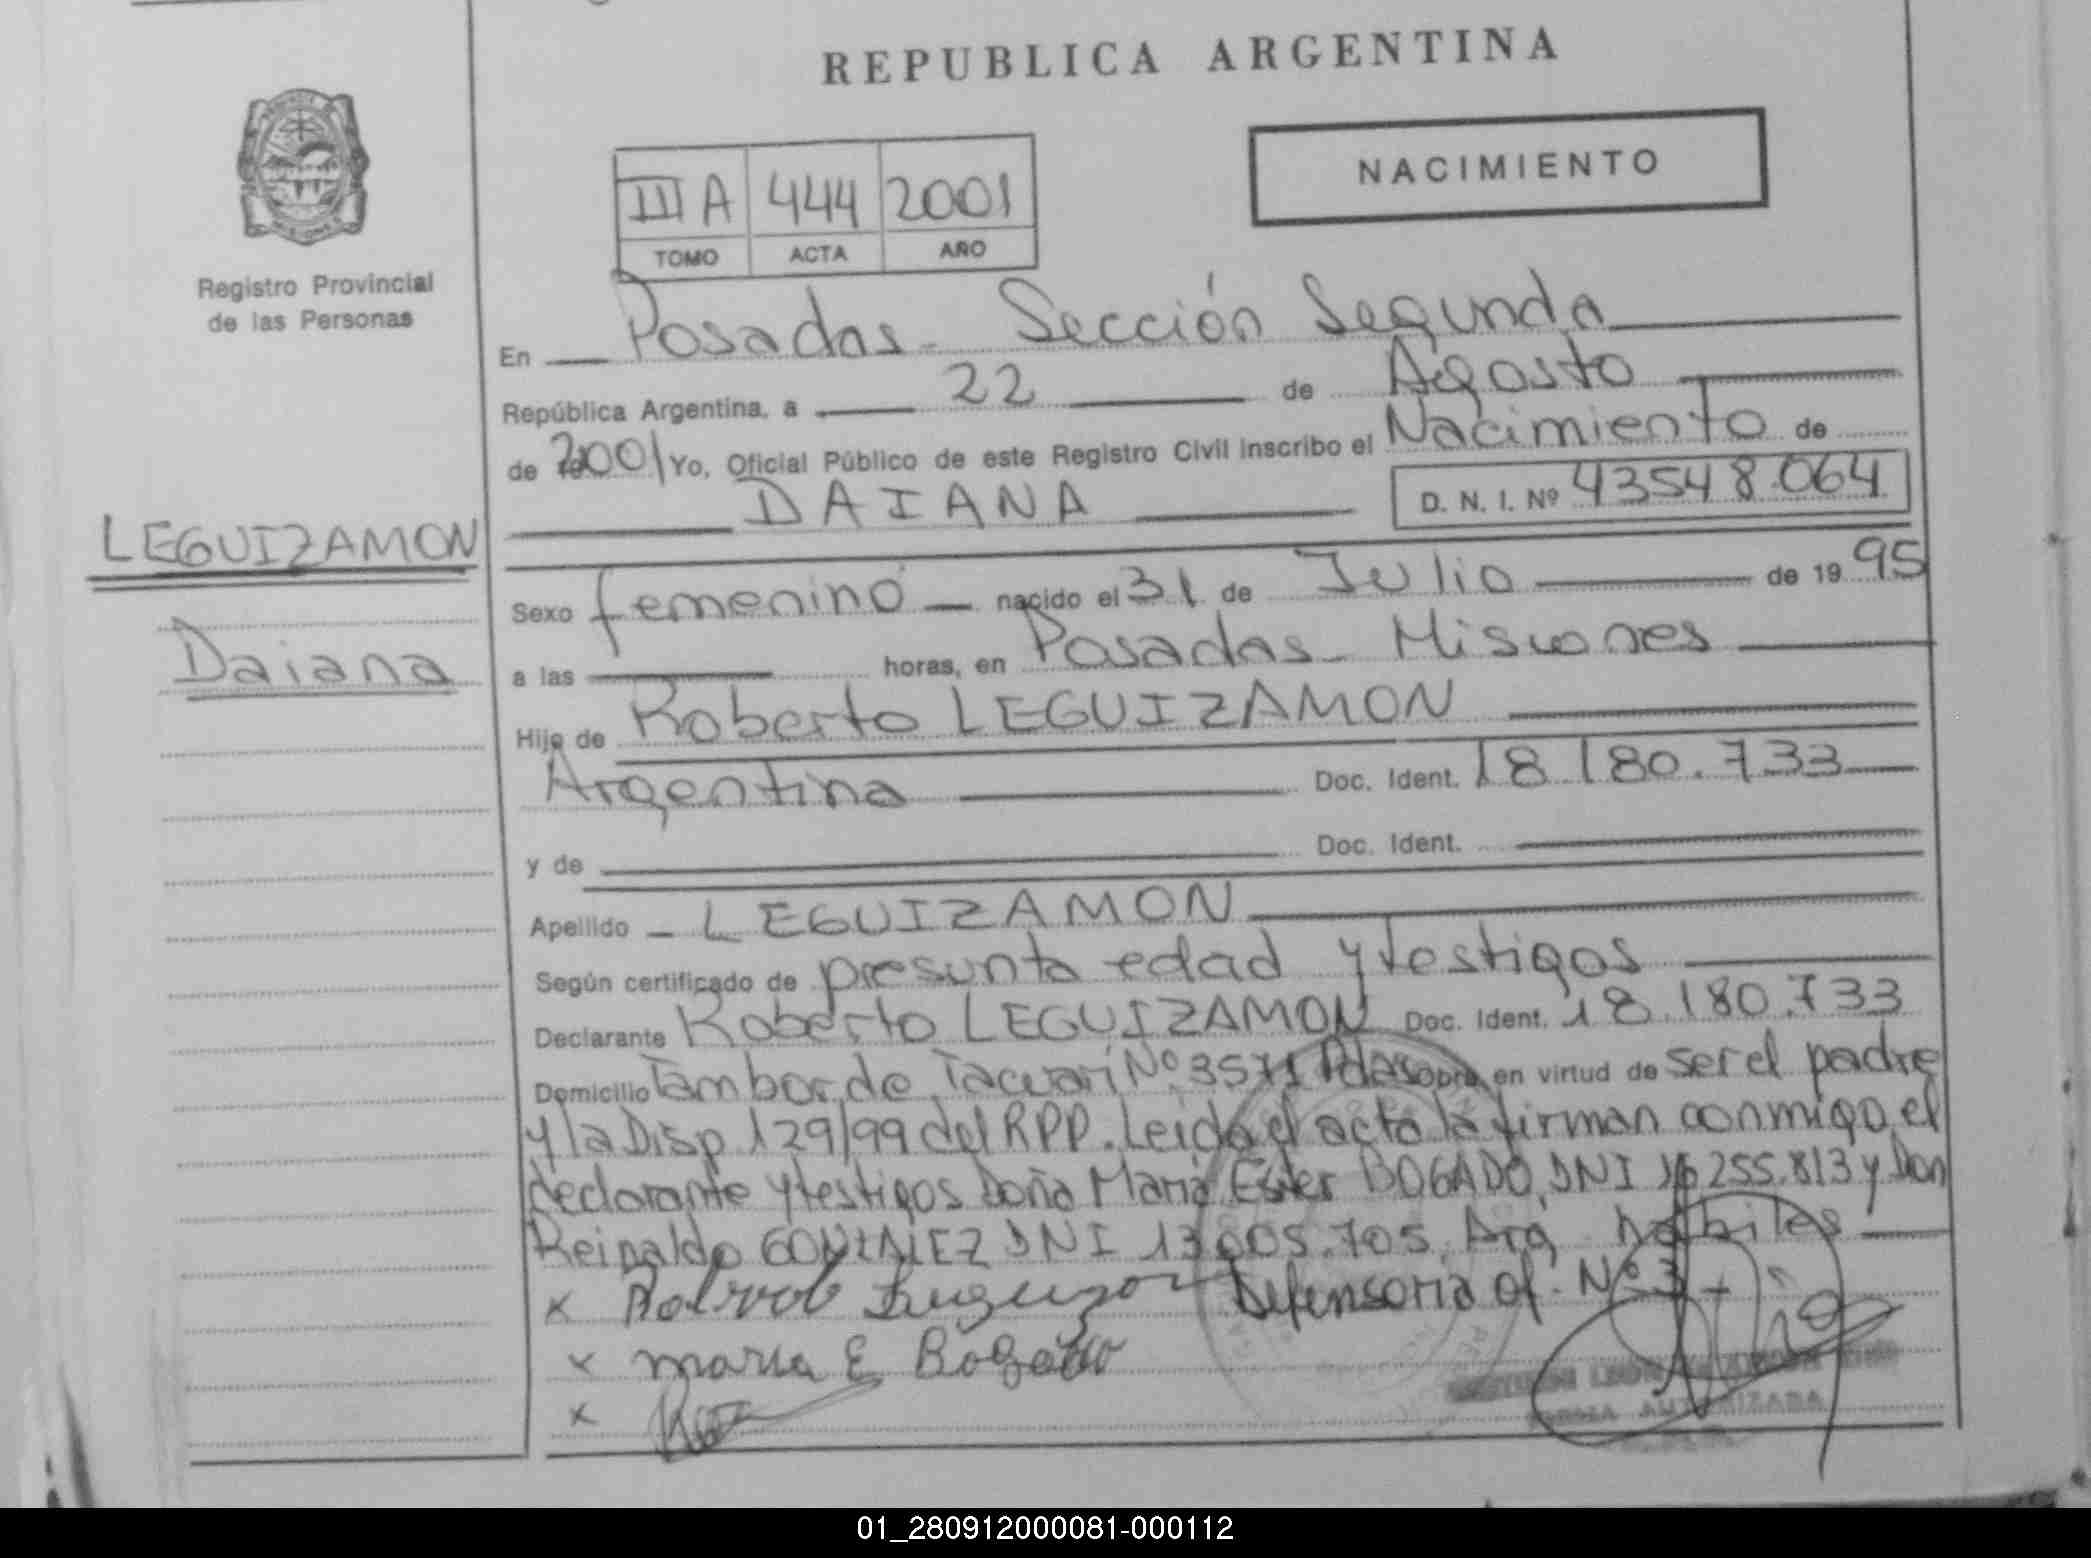 REPUBLICA ARGENTINA
NACIMIENTO
III A 444 2001
TOMO ACTA AÑO
Registro Provincial
de las Personas
En Posadas - Sección Segunda
República Argentina, a 22 de Agosto
de 2001 Yo, Oficial Público de este Registro Civil inscribo el Nacimiento de
DAIANA D. N. I. Nº 43548.064
LEGUIZAMON
Daiana
Sexo femenino nacido el 31 de Julio de 19 95
a las horas, en Posadas - Misiones
Hijo de Roberto LEGUIZAMON
Argentina Doc. Ident. 18 180.733
y de Doc. Ident.
Apellido - LEGUIZAMON
Según certificado de presunta edad y testigos
Declarante Roberto LEGUIZAMON Doc. Ident. 18.180.733
Domicilio Tambor de Tacuari Nº 3571 Pdas obra en virtud de ser el padre
y la Disp 129/99 del RPP. Leida el acta la firman conmigo el
declarante y testigos Doña Maria Ester BOGADO, DNI 16 255.813 y Don
Reinaldo DNI 13 005.705. Arg. habiles
x Defensoria of. Nº 3
x maria E Bogado
x
01_280912000081-000112